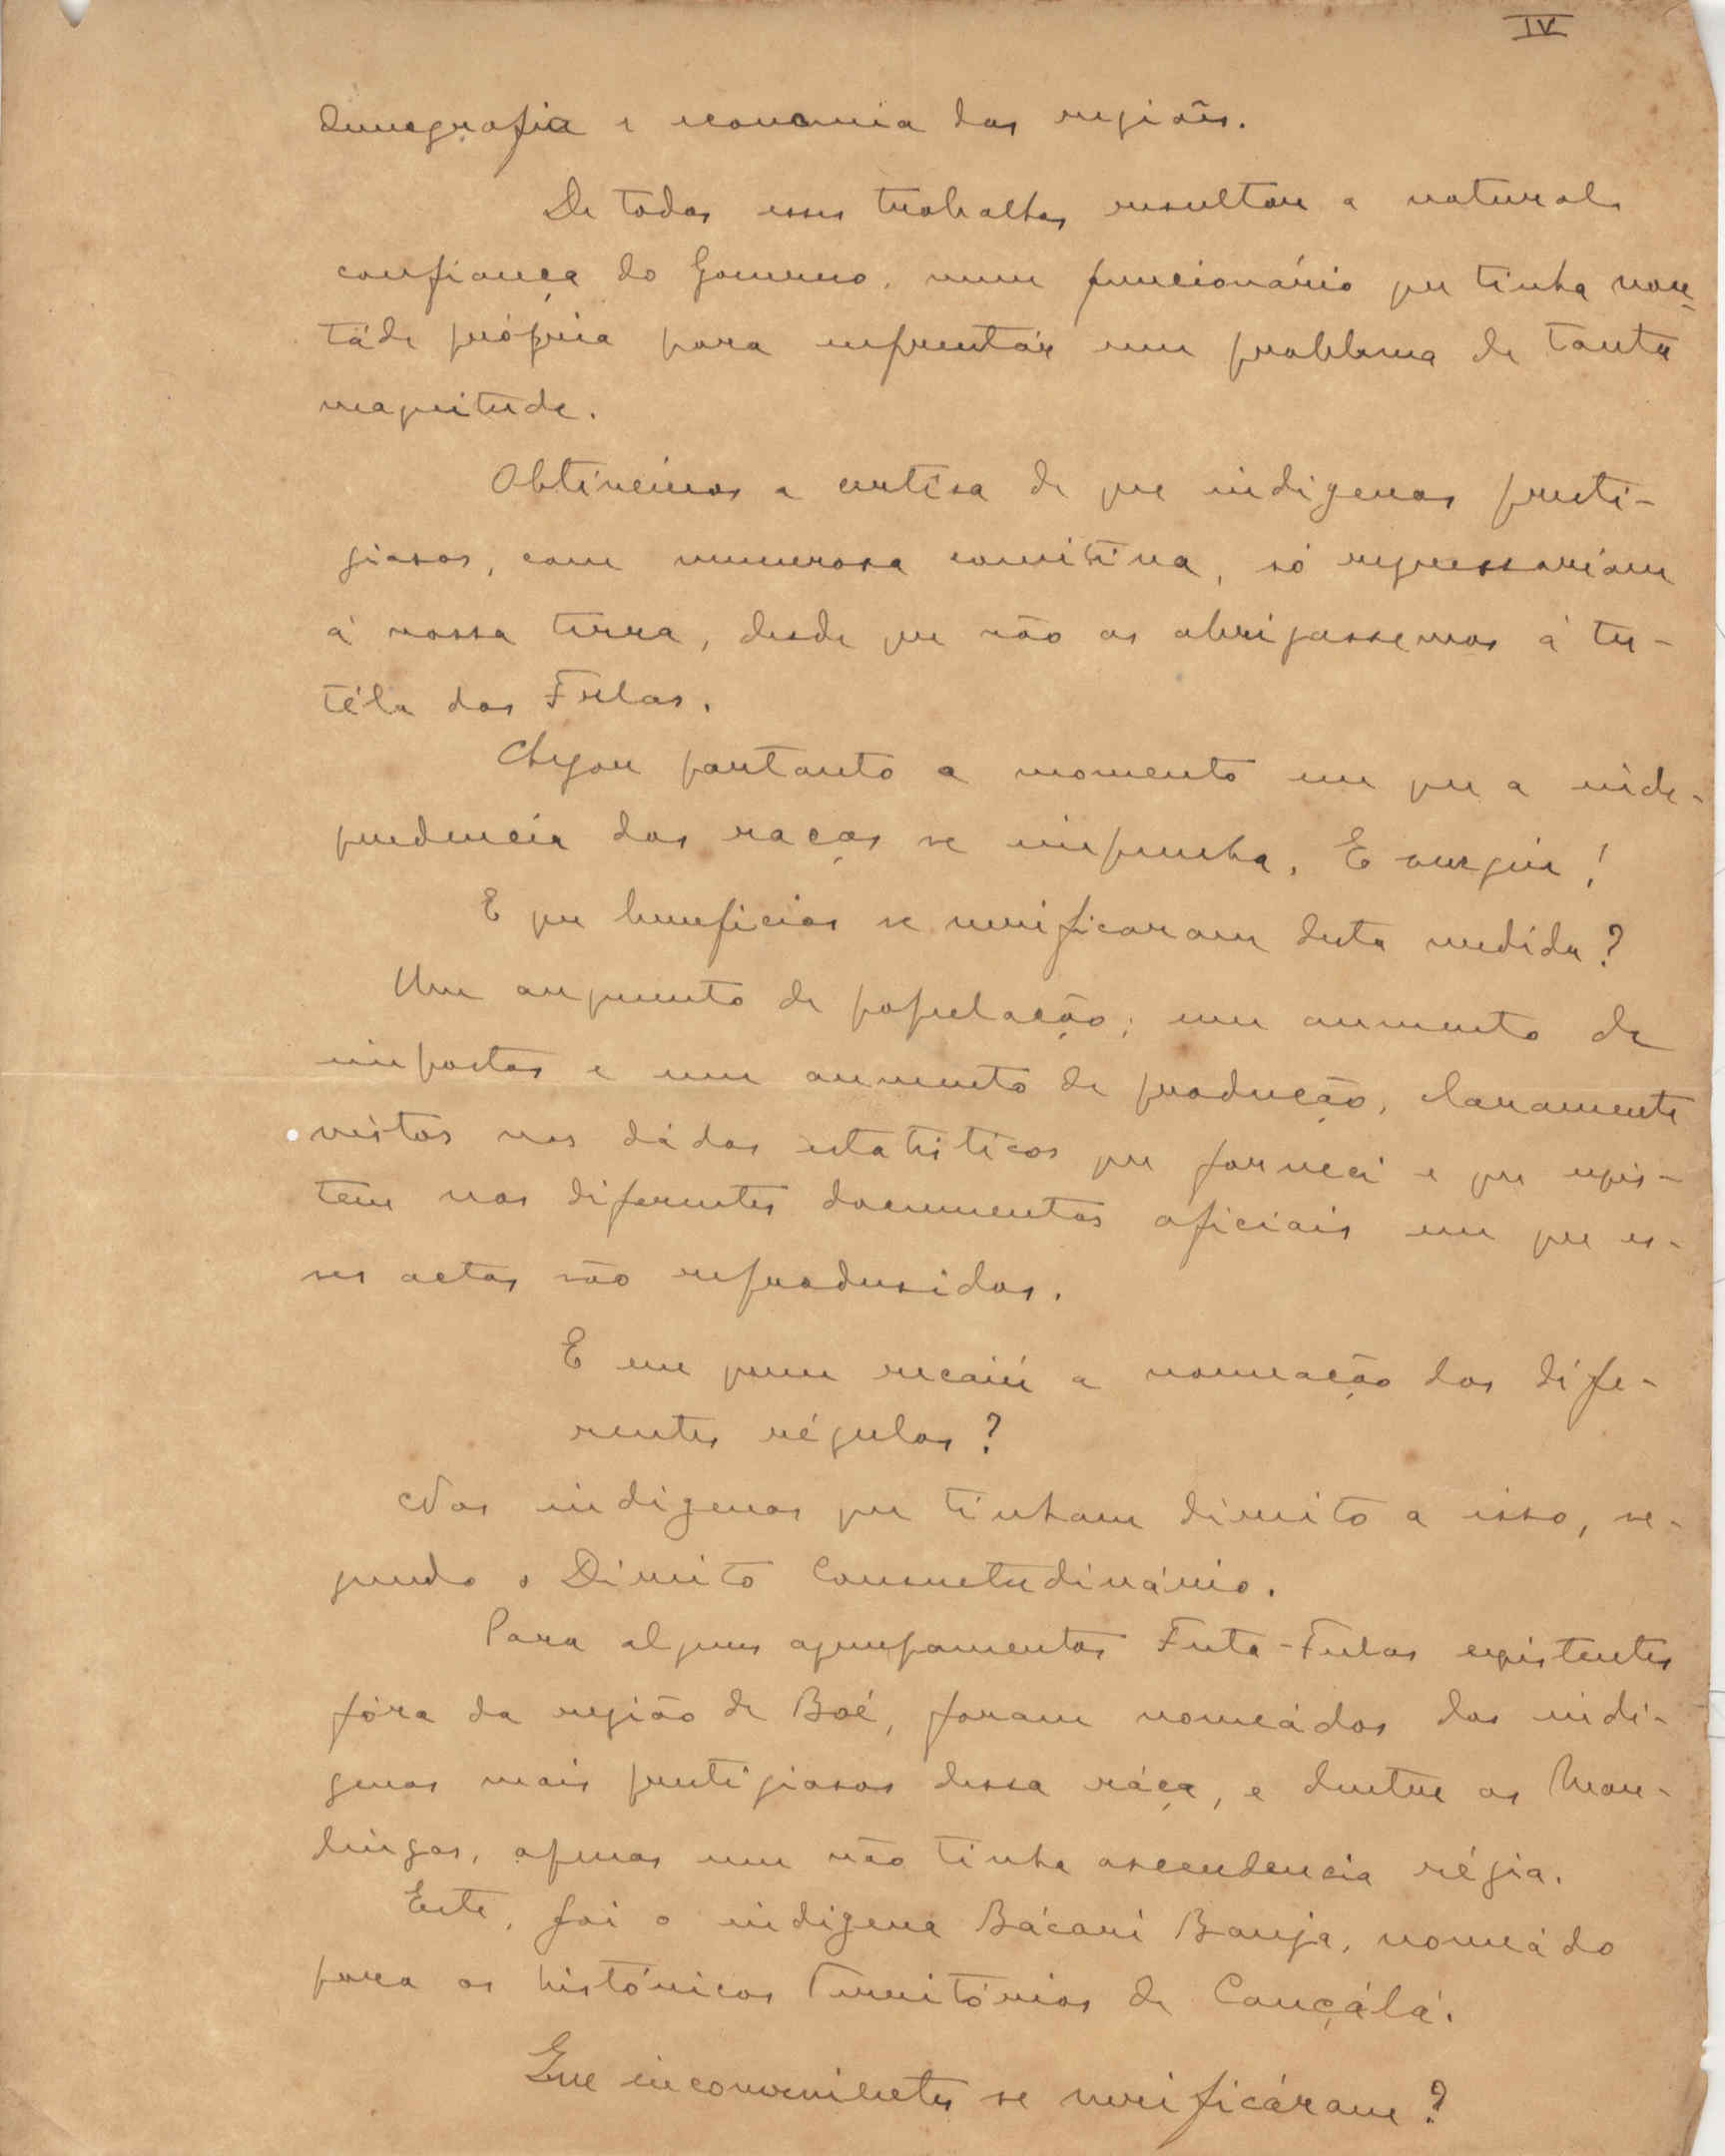 IV
demografia e economia das regiões.
De todos esses trabalhos resultou a natural
confiança do Governo, num funcionário que tinha von-
táde própria para enfrentár um problema de tanta
magnitude.
Obtivémos a certêsa de que indigenas presti-
giosos, com numerosa comitiva, só regressariam
á nossa terra, desde que não os obrigassemos á tu-
téla dos Fulas.
Chegou portanto o momento em que a inde-
pendencia das raças se impunha. E surgiu!
E que beneficios se verificaram desta medida?
Um augmento de população; um aumento de
impostos e um aumento de produção, claramente
vistos nos dádos estatisticos que forneci e que exis-
tem nos diferentes documentos oficiais em que es-
ses actos são reproduzidos.
E em quem recaiú a nomeação dos dife-
rentes régulos?
Nos indigenas que tinham direito a isso, se-
gundo o Direito Consuetudinário.
Para alguns agrupamentos Futa-Fulas existentes
fóra da região de Boé, foram nomeádos dos indi-
genas mais prestigiosos dessa ráça, e dentre os Man-
dingas, apenas um não tinha ascendencia régia.
Este, foi o indigena Bácari Banja, nomeádo
para os históricos Territórios de Cançálá.
Que inconvenientes se verificáram?